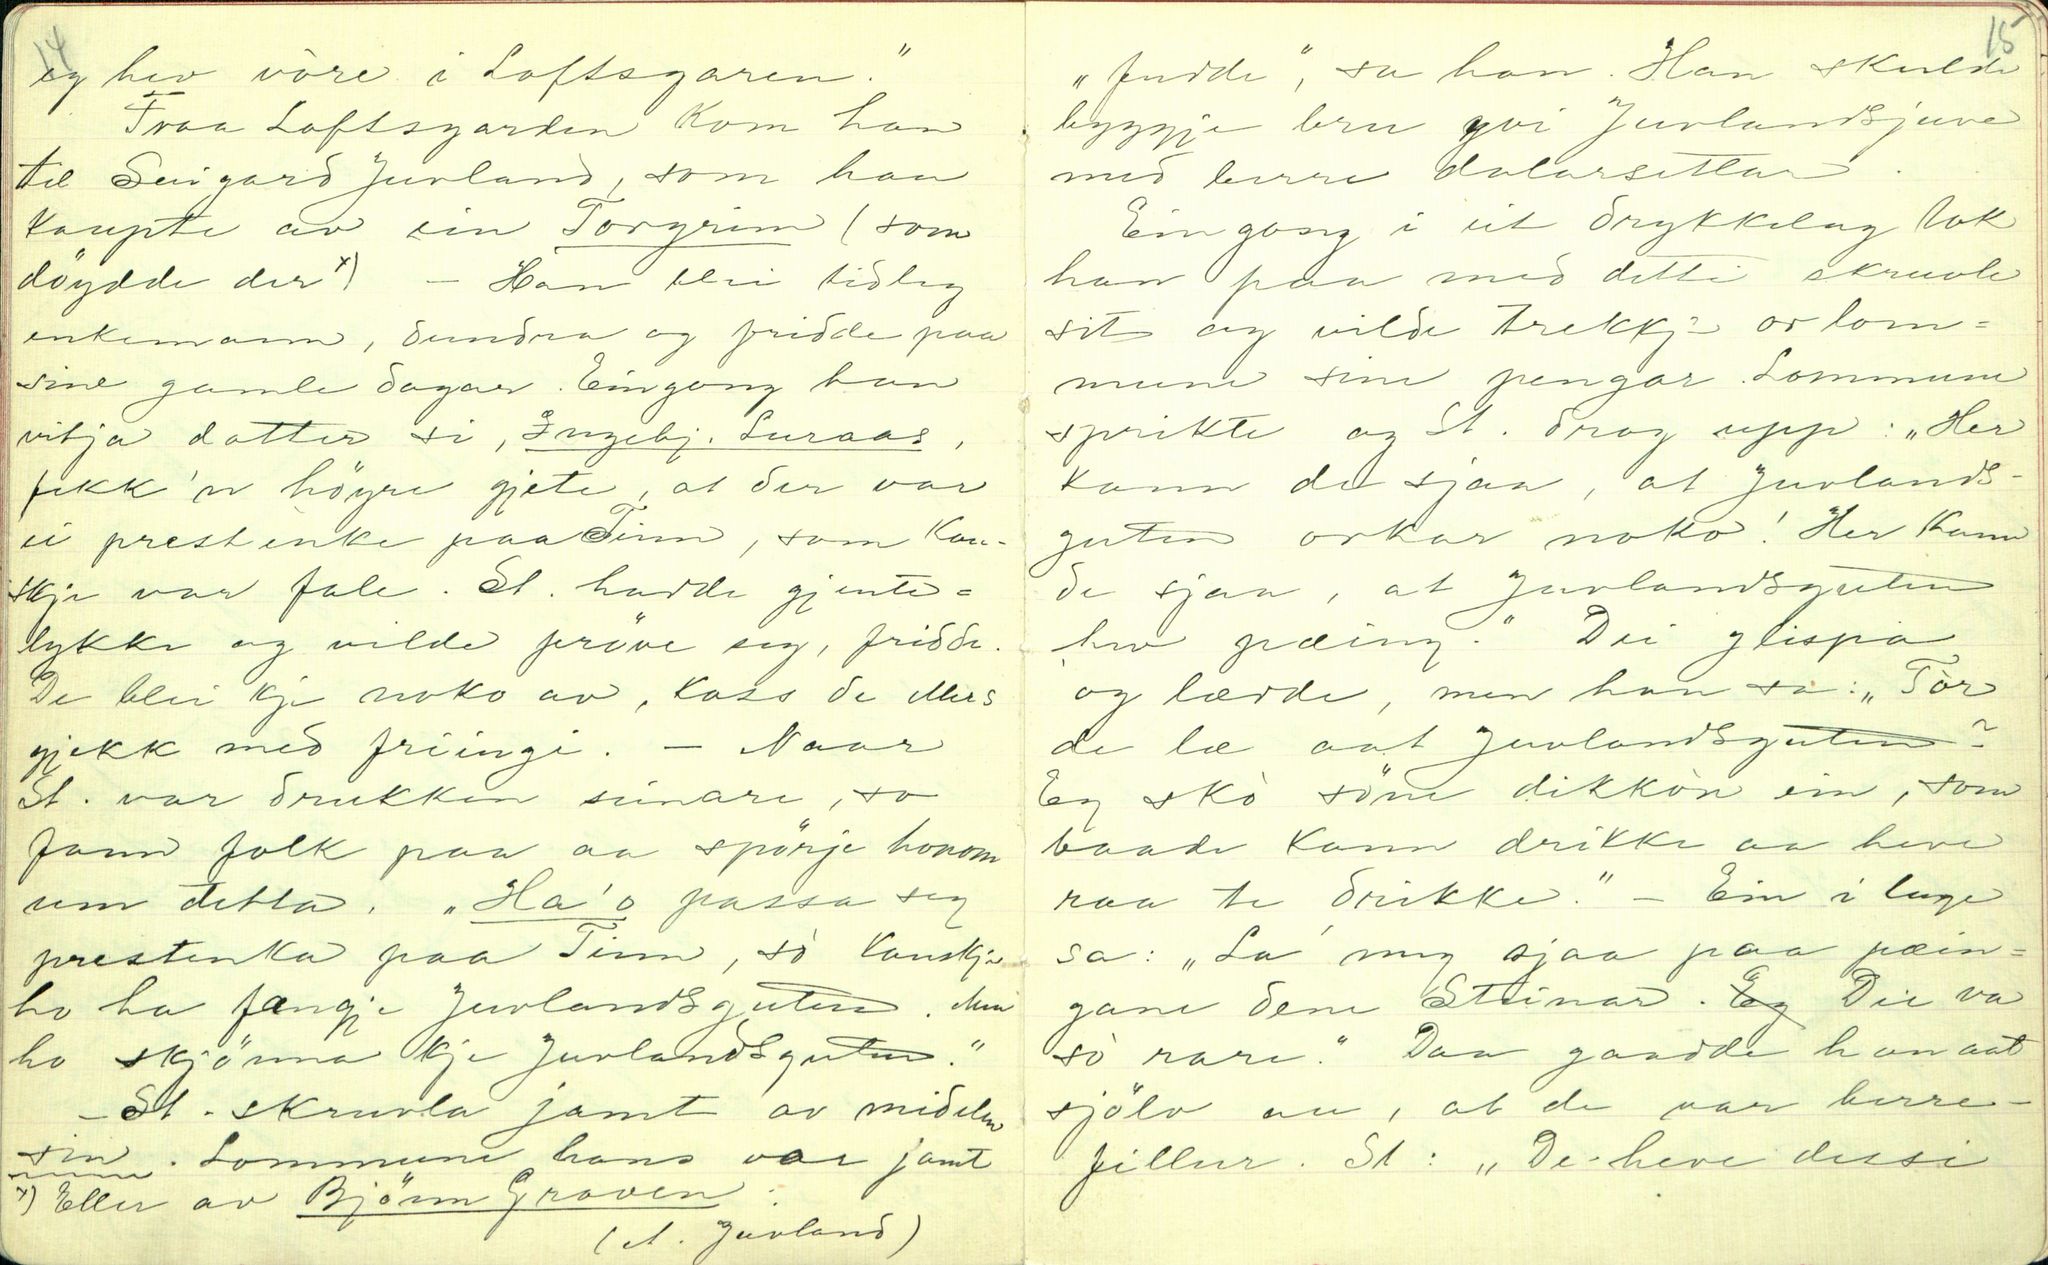 14
eg hev vöre i Loftsgaren."
Fraa Loftsgarden kom han
til Suigard Juvland, som han
kaupte av ein Torgrim (som
döydde der x) — Han blei tidleg
enkemann, dundra og fridde paa
sine gamle dagar. Eingong han
vitja dotter si, Ingebj. Luraas,
fekk 'n höyre gjete, at der var
ei prestenke paa Tinn, som kan-
skje var fale. St. hadde gjente=
lykke og vilde pröve seg, fridde.
De blei kje noko av, koss de ellers
gjekk med friingi. — Naar
St. var drukken seinare, so
fann folk paa aa spörje honom
um detta. „Ha'o passa seg
prestenka paa Tinn, sò kanskje
ho ha fengje Juvlandsguten. Men
ho skjönna kje Juvlandsguten."
— St. skruvla jamt av midelen
sin. Lommune hans var jamt
x) Eller av Björn Graven.
(A. Juvland)
15
„fudde", sa han. Han skulde
byggje bru yvi Juvlandsjuve
med berre dalarsetlar.
Ein gong i eit drykkelag tok
han paa med dette skruvle
sit og vilde trekkje or lom=
mune sine pengar. Lommune
sprikte og St. drog upp: „Her
kann de sjaa, at Juvlands-
guten orkar noko! Her kann
de sjaa, at Juvlandsguten
hev pæing." Dei glispa
og lædde, men han sa: „Tor
de læ aat Juvlandsguten?
Eg skò söne dikkòn ein, som
baade kann drikke aa heve
raa te drikke." — Ein i lage
sa: „La' meg sjaa paa pæin=
gane dene Steinar. Eg Dei va
sò rare." Daa gaadde han aat
sjölv au, at de var berre
fillur. St: „De heve dessi